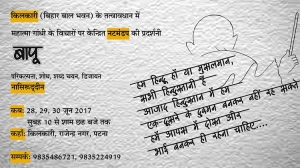 किलकारी (बिहार बाल भवन) के तत्वावधान में
महात्मा गांधी के विचारों पर केन्द्रित नटमंडप की प्रदर्शनी
बापू
परिकल्पना, शोध, शब्द चयन, डिजायन
नासिरूद्दीन
कब: 28, 29, 30 जून 2017
सुबह 10 से शाम छह बजे तक
कहां: किलकारी, राजेन्द्र नगर, पटना
सम्पर्क: 9835486721, 9835224919
हम हिन्दू हों या मुसलमान,
सभी हिन्दुस्तानी हैं
आजाद हिन्दुस्तान में हम
एक-दूसरे के दुश्मन बनकर नहीं रह सकते
हमें आपस में दोस्त और
भाई बनकर ही रहना चाहिए...